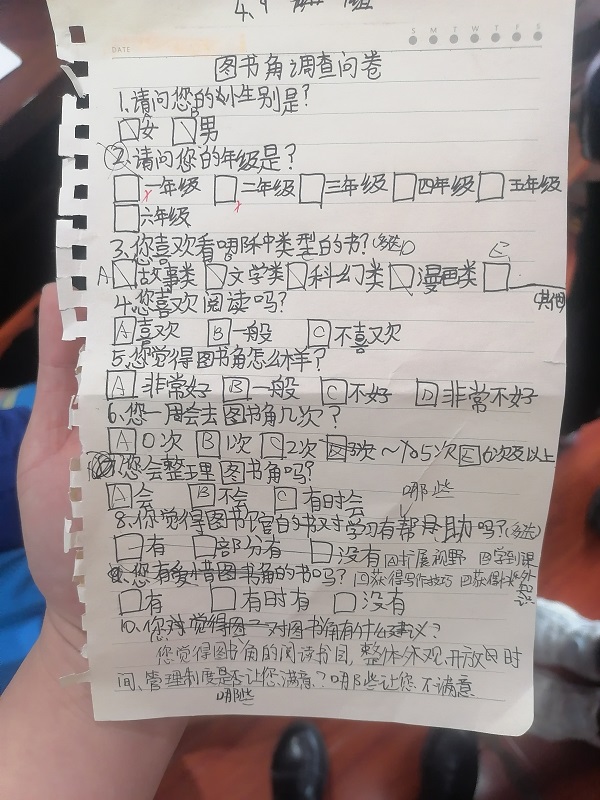 4.9
S M T W T F S
DATE
图书角调查问卷
1.请问您的性别是?
女 男
②.请问您的年级是?
一年级 二年级 三年级 四年级 五年级
六年级
3.你喜欢看哪种类型的书?(多选)
A 故事类 文学类 科幻类 漫画类 E
其他
4.您喜欢阅读吗?
A 喜欢 B 一般 C 不喜欢
5.您觉得图书角怎么样?
A 非常好 B 一般 C 不好 D 非常不好
6.您一周会去图书角几次?
A 0次 B 1次 C 2次 D 3次~5次 E 6次及以上
您会整理图书角吗?
A 会 B 不会 C 有时会
哪些
8.你觉得图书馆的书对学习有帮助吗?(多选)
有 部分有 没有 A扩展视野 B学到课
外知识
您有爱惜图书角的书吗? C获得写作技巧
有 有时有 没有
10.您对图书角有什么建议?
您觉得图书角的阅读书目,整体外观,开放时
间、管理制度是否让您满意?哪些让您不满意
哪些